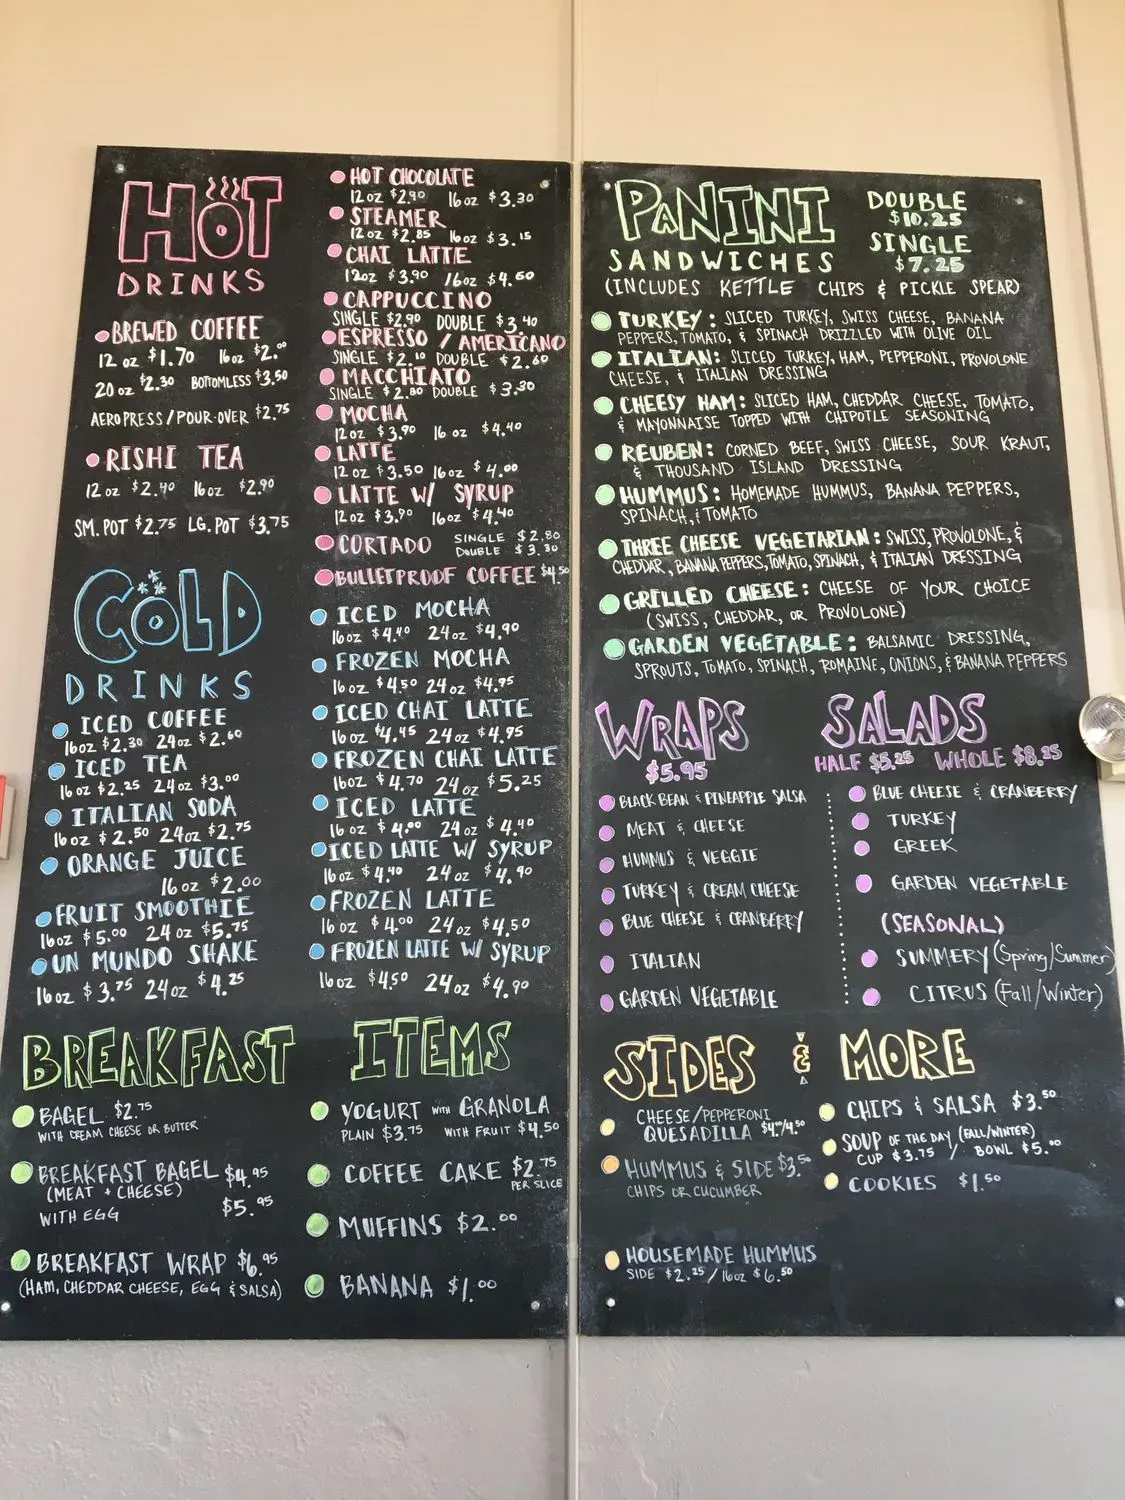 HOT
DRINKS
BREWED COFFEE
12 oz $1.70 16oz $2.00
20 oz $2.30 BOTTOMLESS $3.50
AEROPRESS/POUR-OVER $2.75
RISHI TEA
12 oz $2.40 16oz $2.90
SM. POT $2.75 LG. POT $3.75
HOT CHOCOLATE
12oz $2.90 16oz $3.30
STEAMER
12oz $2.85 16oz $3.15
CHAI LATTE
12oz $3.90 16oz $4.60
CAPPUCCINO
SINGLE $2.90 DOUBLE $3.40
ESPRESSO / AMERICANO
SINGLE $2.10 DOUBLE $2.60
MACCHIATO
SINGLE $2.80 DOUBLE $3.30
MOCHA
12oz $3.90 16 oz $4.40
LATTE
12 oz $3.50 16oz $4.00
LATTE W/ SYRUP
12oz $3.90 16oz $4.40
CORTADO SINGLE $2.80
DOUBLE $3.30
BULLETPROOF COFFEE $4.50
COLD
DRINKS
ICED COFFEE
16oz $2.30 24oz $2.60
ICED TEA
16oz $2.25 24oz $3.00
ITALIAN SODA
16oz $2.50 24oz $2.75
ORANGE JUICE
16oz $2.00
FRUIT SMOOTHIE
16oz $5.00 24oz $5.75
UN MUNDO SHAKE
16oz $3.75 24oz $4.25
ICED MOCHA
16oz $4.40 24oz $4.90
FROZEN MOCHA
16oz $4.50 24oz $4.95
ICED CHAI LATTE
16oz $4.45 24oz $4.95
FROZEN CHAI LATTE
16oz $4.70 24oz $5.25
ICED LATTE
16oz $4.00 24oz $4.40
ICED LATTE W/ SYRUP
16oz $4.40 24oz $4.90
FROZEN LATTE
16oz $4.00 24oz $4.50
FROZEN LATTE W/ SYRUP
16oz $4.50 24oz $4.90
BREAKFAST ITEMS
BAGEL $2.75
WITH CREAM CHEESE OR BUTTER
BREAKFAST BAGEL $4.95
(MEAT + CHEESE)
WITH EGG $5.95
BREAKFAST WRAP $6.95
(HAM, CHEDDAR CHEESE, EGG & SALSA)
YOGURT WITH GRANOLA
PLAIN $3.75 WITH FRUIT $4.50
COFFEE CAKE $2.75
PER SLICE
MUFFINS $2.00
BANANA $1.00
PANINI
SANDWICHES
DOUBLE
$10.25
SINGLE
$7.25
(INCLUDES KETTLE CHIPS & PICKLE SPEAR)
TURKEY: SLICED TURKEY, SWISS CHEESE, BANANA
PEPPERS, TOMATO, & SPINACH DRIZZLED WITH OLIVE OIL
ITALIAN: SLICED TURKEY, HAM, PEPPERONI, PROVOLONE
CHEESE, & ITALIAN DRESSING
CHEESY HAM: SLICED HAM, CHEDDAR CHEESE, TOMATO,
& MAYONNAISE TOPPED WITH CHIPOTLE SEASONING
REUBEN: CORNED BEEF, SWISS CHEESE, SOUR KRAUT,
& THOUSAND ISLAND DRESSING
HUMMUS: HOMEMADE HUMMUS, BANANA PEPPERS,
SPINACH, & TOMATO
THREE CHEESE VEGETARIAN: SWISS, PROVOLONE, &
CHEDDAR, BANANA PEPPERS, TOMATO, SPINACH, & ITALIAN DRESSING
GRILLED CHEESE: CHEESE OF YOUR CHOICE
(SWISS, CHEDDAR, OR PROVOLONE)
GARDEN VEGETABLE: BALSAMIC DRESSING,
SPROUTS, TOMATO, SPINACH, ROMAINE, ONIONS, & BANANA PEPPERS
WRAPS
$5.95
BLACK BEAN & PINEAPPLE SALSA
MEAT & CHEESE
HUMMUS & VEGGIE
TURKEY & CREAM CHEESE
BLUE CHEESE & CRANBERRY
ITALIAN
GARDEN VEGETABLE
SALADS
HALF $5.25 WHOLE $8.25
BLUE CHEESE & CRANBERRY
TURKEY
GREEK
GARDEN VEGETABLE
(SEASONAL)
SUMMERY (Spring/Summer)
CITRUS (Fall/Winter)
SIDES & MORE
CHEESE/PEPPERONI
QUESADILLA $4.00/4.50
HUMMUS & SIDE $3.50
CHIPS OR CUCUMBER
HOUSEMADE HUMMUS
SIDE $2.25 / 16oz $6.50
CHIPS & SALSA $3.50
SOUP OF THE DAY (FALL/WINTER)
CUP $3.75 / BOWL $5.00
COOKIES $1.50